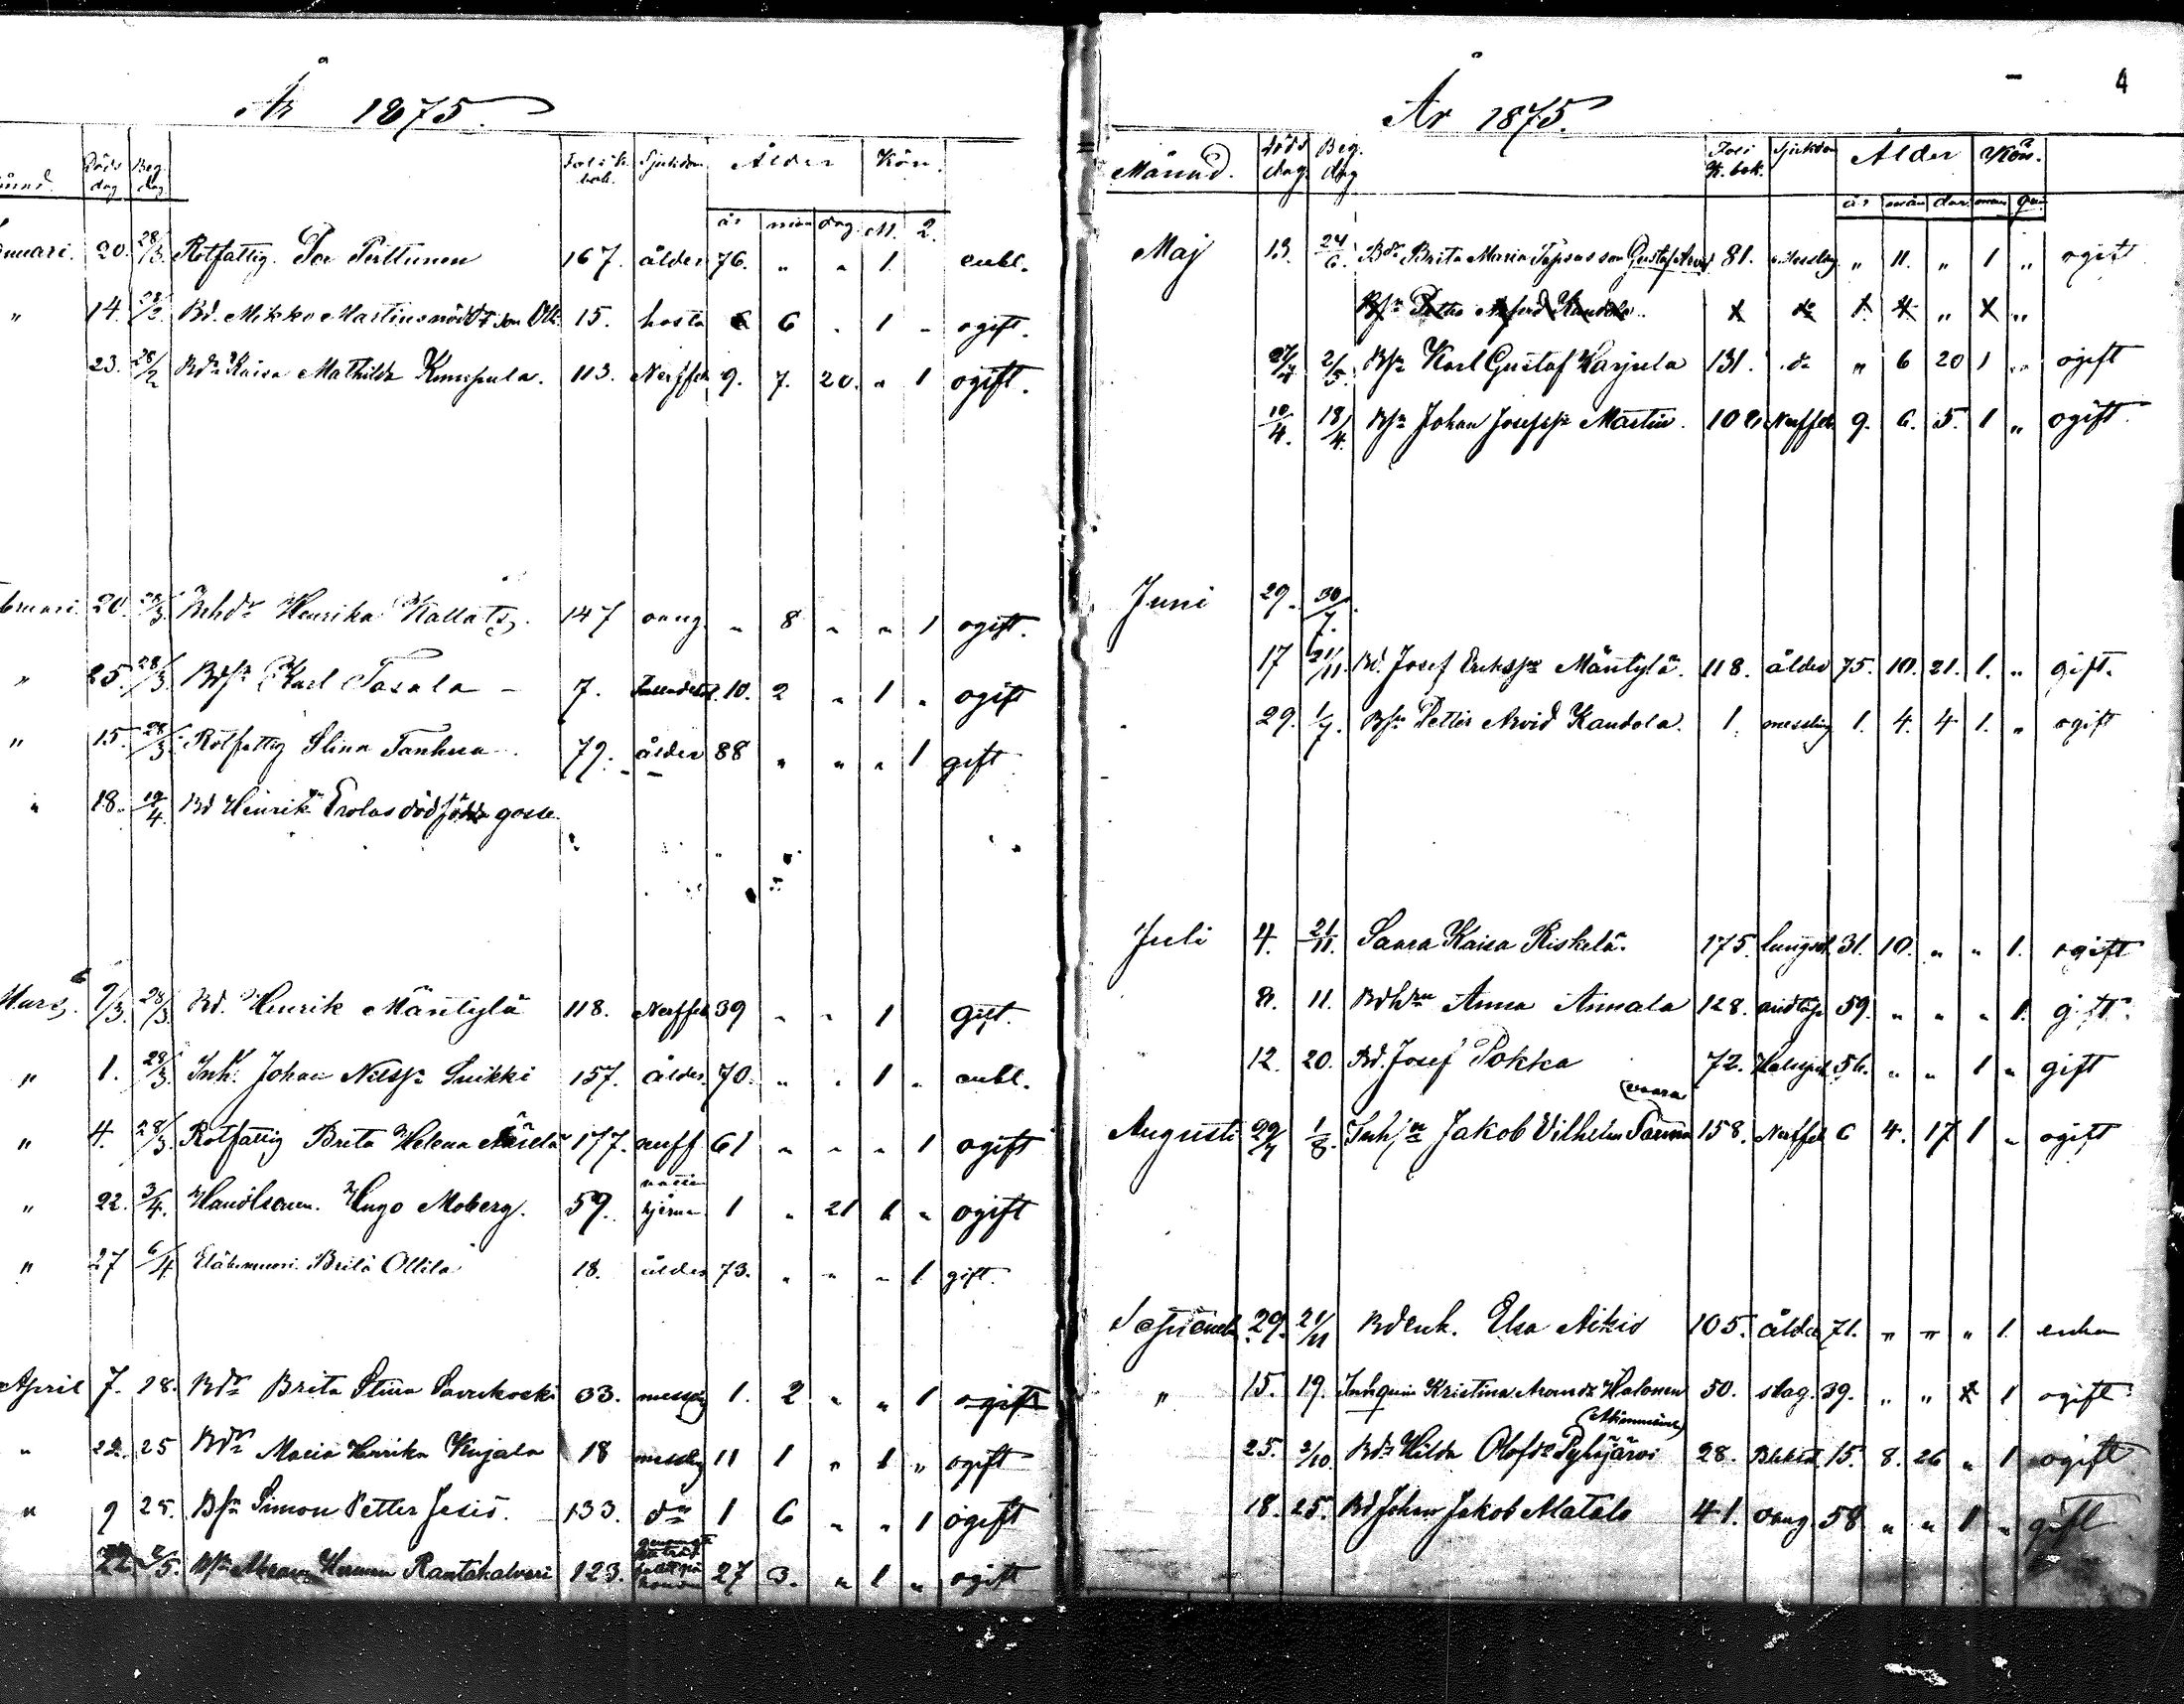 År 1875.
Döds dag Beg. dag Fol. i k. bok. Sjukdom Ålder Kön.
år mån dag M. Q.
20. 28/3. Rotfattig. Per Perttunen 167. ålder 76. " " 1. enkl.
" 14. Bd. Mikko Martins son Olli 15. hosta 6 " 1 " ogift.
23. 28/2 Bdr Kaisa Mathilda Kumpula. 113. Nerffeb 9. 7. 20. " 1 ogift.
20. 28/3. Inhdr Henrika Kallats. 147 oang " 8 " " 1 ogift.
" 25. 28/3. Bdsn Karl Tasala 7. 10. 2 " 1 " ogift
" 15. 28/3. Rotfattig Stina Tanhua. 79. ålder 88 " " " 1 gift
" 18. 12/4. Bd Henrik Erolas dödfödda gosse.
Mars. 9/3. 28/3. Bd. Henrik Mäntylä 118. Nerffeb 39 " " 1 gift.
" 1. 28/3. Inh. Johan Nilssn Suikki 157. ålder. 70. " " 1 " enkl.
" 4. 28/3. Rotfattig Brita Helena 177. nerff 61 " " " 1 ogift
" 22. 3/4. Handlsman. Hugo Moberg. 59. hjernan 1 " 21 1 " ogift
" 27 6/4 Brita Ollila 18. ålder 73. " " " 1 gift.
April 7. 18. Bdr Brita Stina Savukoski 33. messling 1. 2 " " 1 ogift
" 22. 25 Bdr Maria Henrika Kujala 18 messling 11 1 " 1 " ogift
" 9 25. Bsn Simon Petter Jesiö. 133. do 1 6 " " 1 ogift
22 2/5. Herman Rantakalvari 123. 27 3. " 1 " ogift
4
År 1875.
Månad. död dag. Beg. dag Fol i K. bok. Sjukdom Ålder Kön.
år mån dar man qvi
Maj 13. 24/6. Bdr Brita Maria son Gustaf Arvid 81. messling " 11. " 1 " ogift
Bsn Kandola
27/4 2/5. Bsn Karl Gustaf Harjula 131. do " 6 20 1 " ogift
10/4. 18/4. Bsn Johan Josefsn Martin. 102 Nerffeb 9. 6. 5. 1 " ogift.
Juni 29. 30/7.
17 21/11. Bd. Josef Erikssn Mäntylä. 118. ålder 75. 10. 21. 1. " gift.
29. 1/7. Bsn Petter Arvid Kandola. 1. messling 1. 4. 4 1. " ogift
Juli 4. 21/11. Saara Kaisa Riskelä. 175. Lungsot 31. 10. " " 1. ogift
8. 11. Bdhru Anna Annala 128. andtäp 59. " " " 1. gift.
12. 20. Bd. Josef Pokka 72. 56. " " 1 " gift
(vaara
Augusti 29/7 1/8. Inhsn Jakob Vilhelm 158. Nerffeb 6 4. 17 1 " ogift
29. 21/11 Bdenk. Elsa Aikio 105. ålder 71. " " " 1. enka
" 15. 19. Inhqvin Kristina Halonen 50. slag. 39. " " 1 ogift
25. 2/10. Bdr Hilda Olofdr Pyhäjärvi 28. 15. 8. 26 " 1 ogift
18. 25. Bd Johan Jakob Matala 41. oang. 58 " " 1 " gift